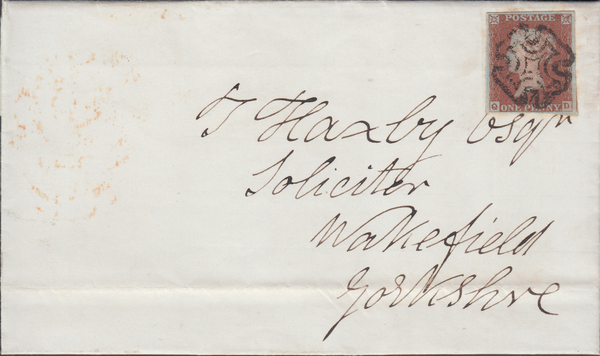 POSTAGE
ONE PENNY
D
T Haxby Esqr
Soliciter
Wakefield
Yorkshire